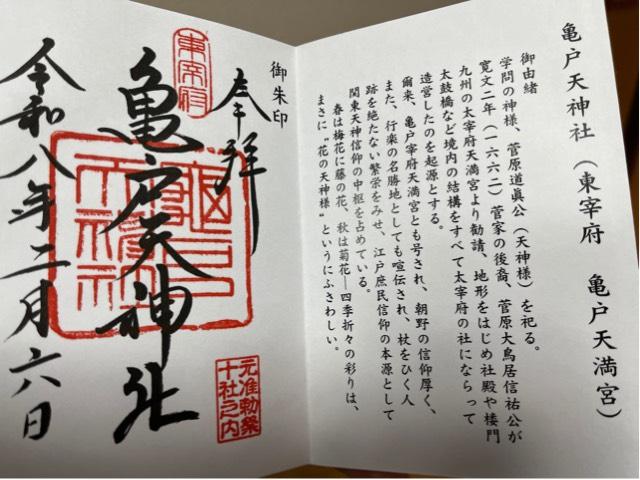 亀戸天神社（東宰府　亀戸天満宮）
御由緒
学問の神様、菅原道眞公（天神様）を祀る。
寛文二年（一六六二）菅家の後裔、菅原大鳥居信祐公が
九州の太宰府天満宮より勧請、地形をはじめ社殿や楼門
太鼓橋など境内の結構をすべて太宰府の社にならって
造営したのを起源とする。
爾来、亀戸宰府天満宮とも号され、朝野の信仰厚く、
また、行楽の名勝地としても宣伝され、杖をひく人
跡を絶たない繁栄をみせ、江戸庶民信仰の本源として
関東天神信仰の中枢を占めている。
春は梅花に藤の花、秋は菊花―四季折々の彩りは、
まさに〝花の天神様〟というにふさわしい。
御朱印
奉拝
東宰府
亀戸天神社
元准勅祭
十社之内
令和八年二月六日